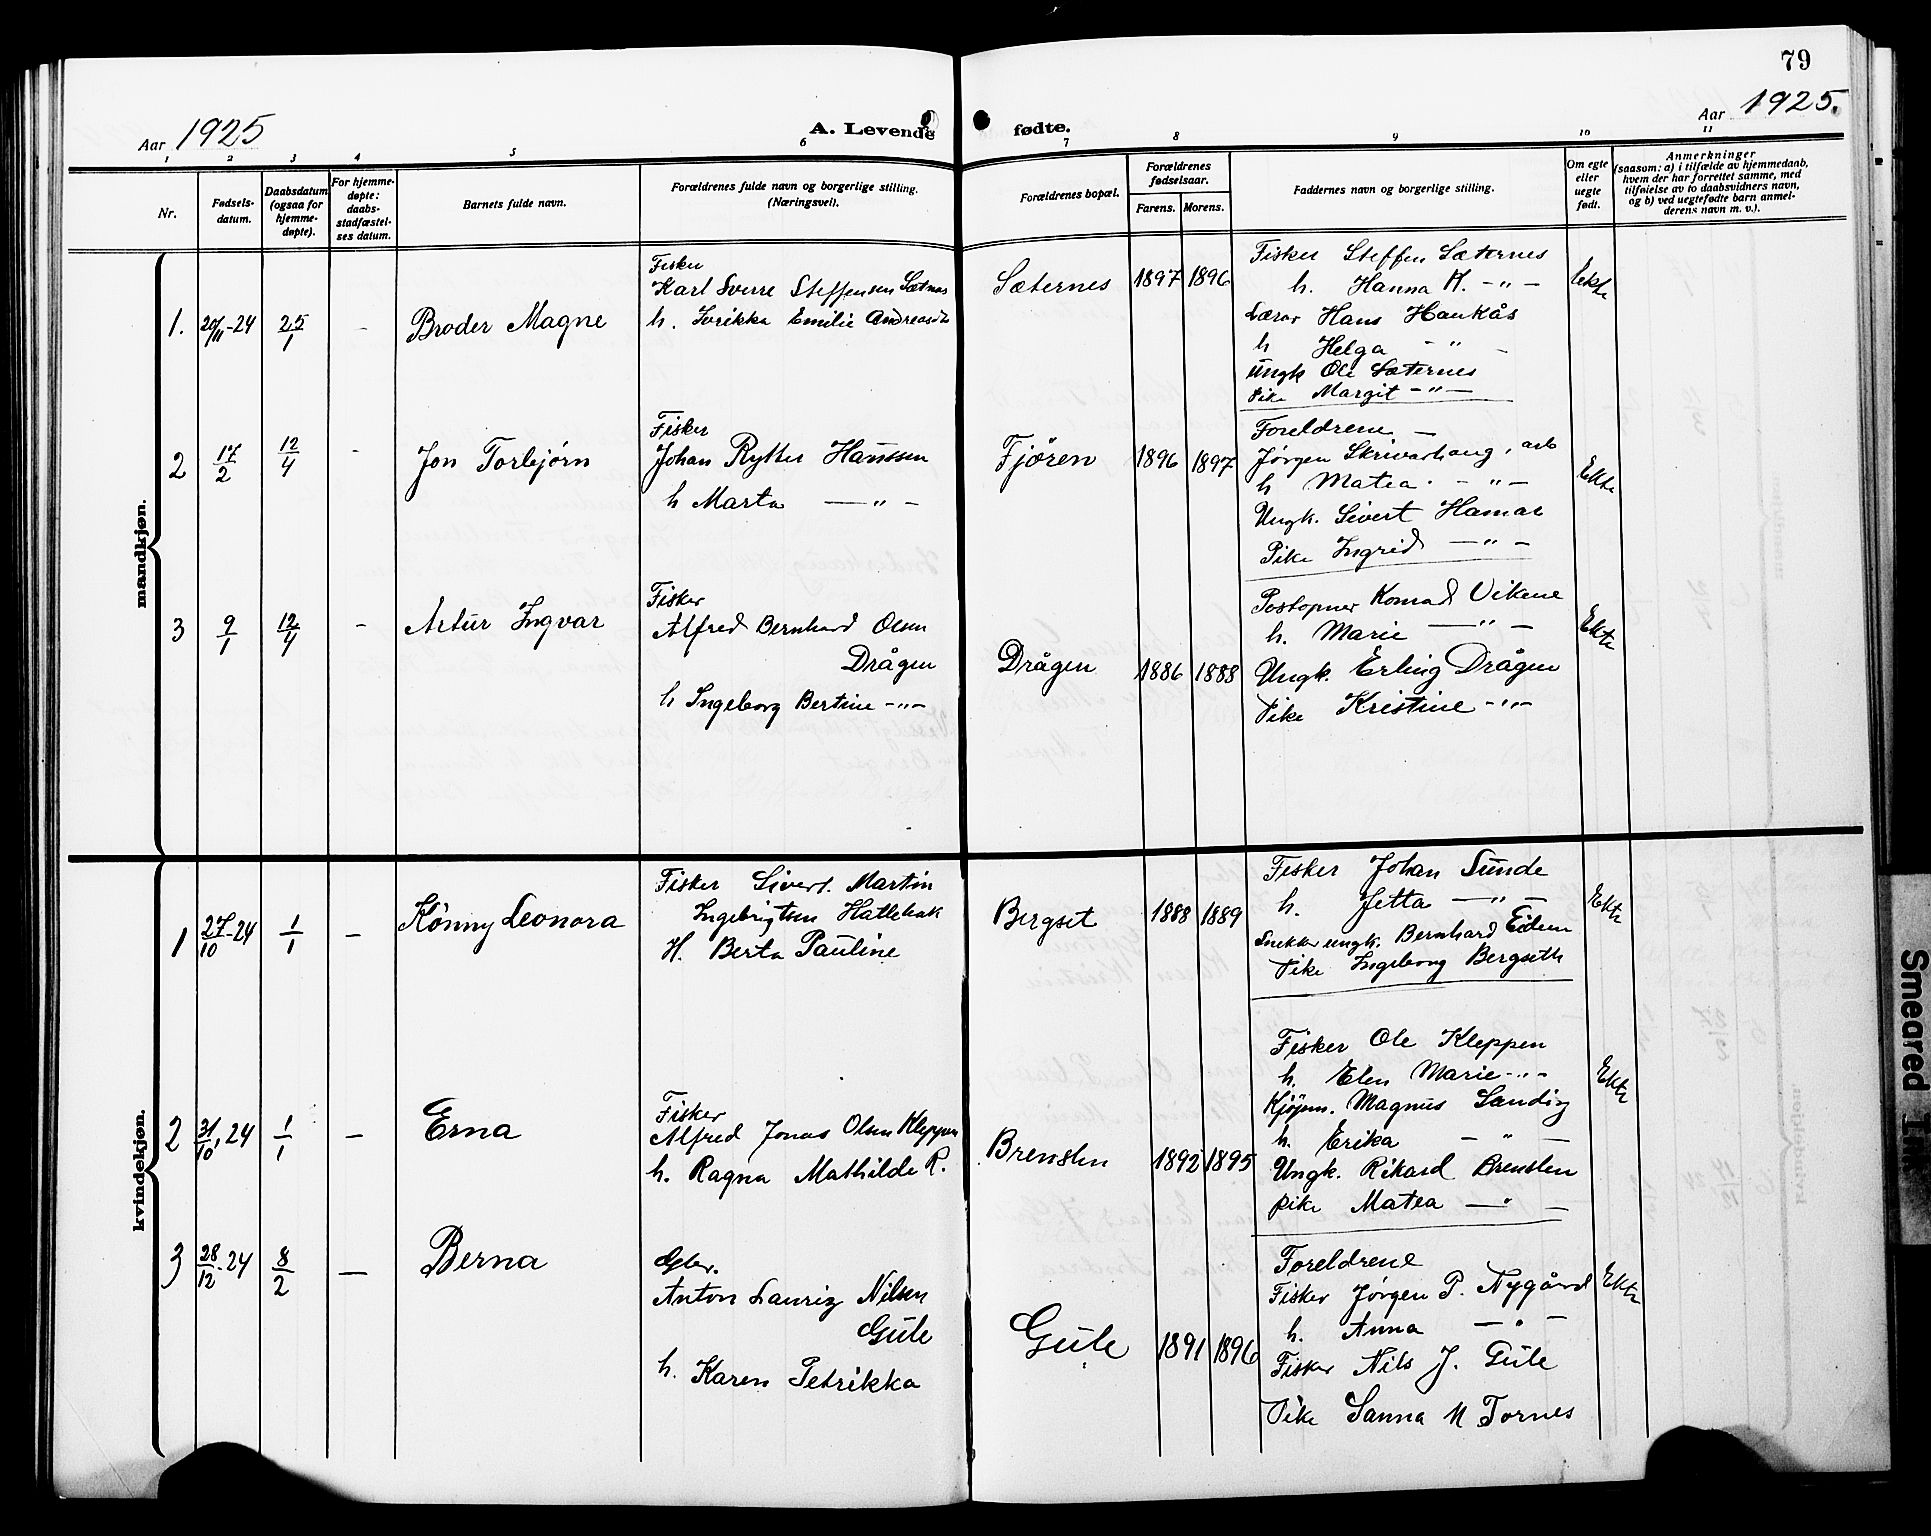 79
Aar 1925
A. Levende fødte.
Aar 1925.
1 2 3 4 5 6 7 8 9 10 11
Nr.
Fødsels-
datum.
Daabsdatum
(ogsaa for
hjemme-
døpte).
For hjemme-
døpte:
daabs-
stadfæstel-
ses datum.
Barnets fulde navn.
Forældrenes fulde navn og borgerlige stilling.
(Næringsvei).
Forældrenes bopæl.
Forældrenes
fødselsaar.
Farens. Morens.
Faddernes navn og borgerlige stilling.
Om egte
eller
uegte
født.
Anmerkninger
(saasom: a) i tilfælde av hjemmedaab,
hvem der har forrettet samme, med
tilføielse av to daabsvidners navn,
og b) ved uegtefødte barn anmel-
derens navn m. v.).
mandkjøn.
1. 20/11-24 25/1 - Broder Magne
Fisker
Karl Sverre Steffensen Sætnes
h. Emilie
Sæternes 1897 1896
Fisker Steffen Sæternes
h. Hanna H. -"-
Lærer Hans Haukås
h Helga -"-
Ungk Ole Sæternes
Pike Margit -"-
Ekte
2 17/2 12/4 - Jon Torbjørn
Fisker
Johan Rytter Hanssen
h Marta -"-
Fjøren 1896 1897
Foreldrene -
Jørgen Skrivarhaug, arb
h Matea -"-
Ungk. Sivert Hamar
Pike Ingrid -"-
Ekte
3 9/1 12/4 - Artur Ingvar
Fisker
Alfred Bernhard Olsen
Drågen
h Ingeborg Bertine -"-
Drågen 1886 1888
Postopner Konrad Vikene
h. Marie -"-
Ungk. Erling Drågen
Pike Kristine -"-
Ekte
kvindekjøn.
1 27/10-24 1/1 - Könny Leonora
Fisker Sivert Martin
Ingebrigtsen Hatlebak
H. Berta Pauline
Bergset 1888 1889
Fisker Johan Sunde
h. Jetta -"-
Snekker ungk. Bernhard Eidem
Pike Ingeborg Bergseth
Ekte
2 31/10-24 1/1 - Erna
Fisker
Alfred Jonas Olsen Kleppen
h. Ragna Mathilde R.
Brensten 1892 1895
Fisker Ole Kleppen
h. Elen Marie -"-
Kjøpm. Magnus Sandøy
h. Erika -"-
Ungk. Rikard Brensten
pike Matea -"-
Ekte
3 28/12-24 8/2 - Berna
Gbr.
Anton Lauriz Nilsen
Gule
h. Karen Petrikka
Gule 1891 1896
Foreldrene
Fisker Jørgen P. Nygård
h. Anna -"-
Fisker Nils J. Gule
Pike Sanna N Tornes
Ekte
Smeared Ink